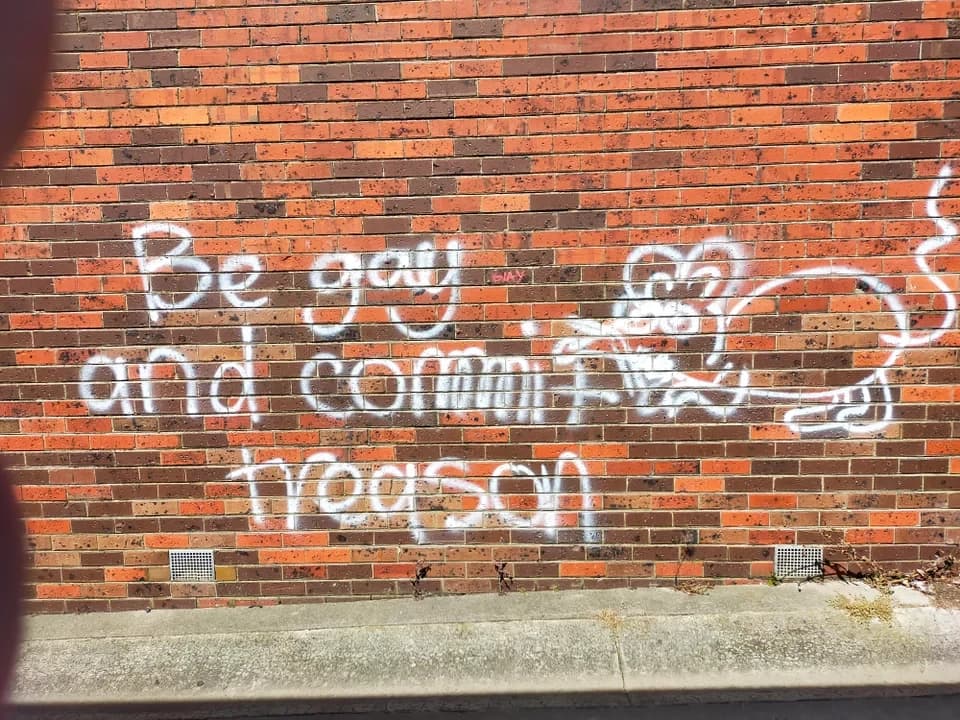 Be gay
SLAY
and commit
treason